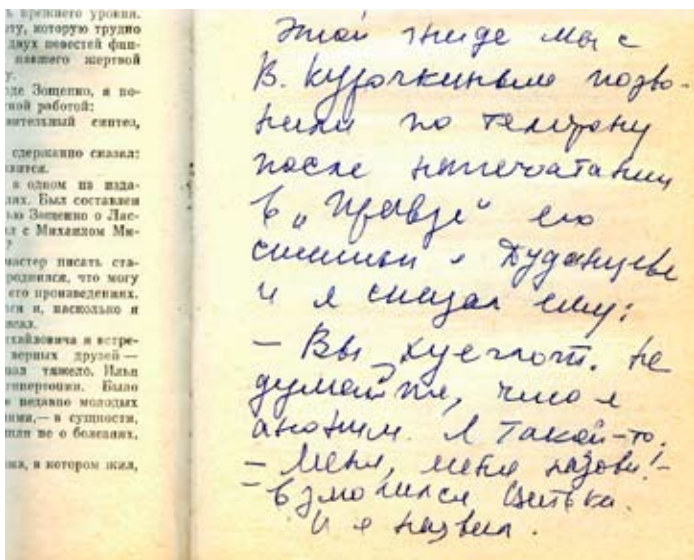 ь прежнего уровня.
оту, которую трудно
двух повестей фин-
павшего жертвой
у.
де Зощенко, я по-
ной работой:
вительный синтез,
сдержанно сказал:
вится.
в одном из изда-
лях. Был составлен
ью Зощенко о Лас-
л с Михаилом Ми-
?
мастер писать ста-
роднился, что могу
его произведениях.
ги и, насколько я
исал.
хайловича и встре-
верных друзей —
вал тяжело. Илья
гипертонии. Было
е недавно молодых
ими,— в сущности,
шли не о болезнях,
ма, в котором жил,
Этой гниде мы с
В. Курочкиным позво-
нили по телефону
после напечатания
в „Правде“ его
статьи о Дудинцеве
и я сказал ему:
— Вы хуеглот. Не
думайте, что я
аноним. Я такой-то.
— Меня, меня назови! —
— взмолился Витька.
И я назвал.